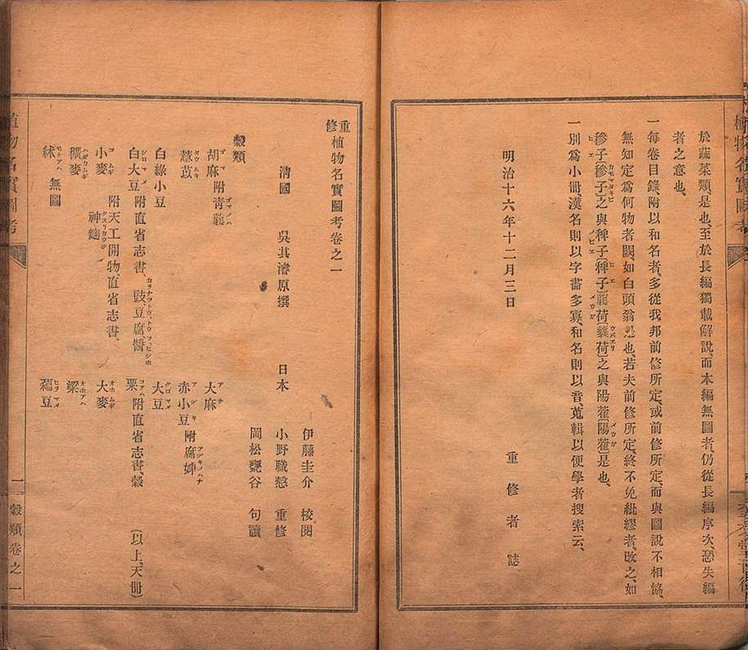 於蔬菜類是也、至於長編獨載解說、而本編無圖者、仍從長編序次、恐失編
者之意也、
一每卷目錄附以和名者、多從我邦前修所定、或前修所定、而與圖說不相協、
無知定爲何物者闕、如白頭翁是也、若夫前修所定、終不免紕繆者、改之、如
䅟子(䅟子)之與稗子(稗子)蘘荷(蘘荷)之與陽藿(陽藿)是也、
一別爲小冊、漢名則以字畵多寡、和名則以音蒐輯、以便學者搜索云、
明治十六年十二月三日
重修者誌
重修植物名實圖考卷之一
清國 吳其濬原撰 日本
伊藤圭介 校閱
小野職愨 重修
岡松甕谷 句讀
穀類
胡麻 附靑蘘 大麻
薏苡 赤小豆 附腐婢
白綠小豆 大豆
白大豆 附直省志書、豉、豆腐、醬 粟 附直省志書、穀 (以上、天冊)
小麥 附天工開物、直省志書、神麴 大麥
穬麥 粱
秫 無圖 穭豆
植物名實圖考
一 穀類卷之一